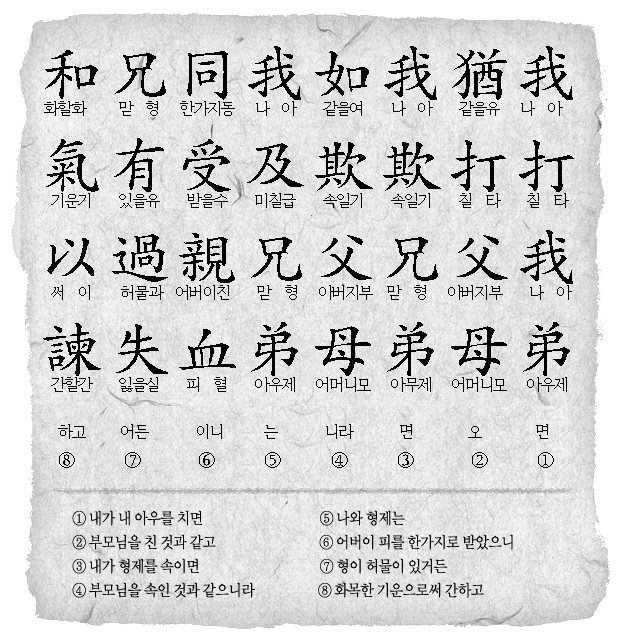 我 나 아 打 칠 타 我 나 아 弟 아우제 면 ①
猶 같을유 打 칠 타 父 아버지부 母 어머니모 오 ②
我 나 아 欺 속일기 兄 맏 형 弟 아무제 면 ③
如 같을여 欺 속일기 父 아버지부 母 어머니모 니라 ④
我 나 아 及 미칠급 兄 맏 형 弟 아우제 는 ⑤
同 한가지동 受 받을수 親 어버이친 血 피 혈 이니 ⑥
兄 맏 형 有 있을유 過 허물과 失 잃을실 어든 ⑦
和 화할화 氣 기운기 以 써 이 諫 간할간 하고 ⑧
① 내가 내 아우를 치면
② 부모님을 친 것과 같고
③ 내가 형제를 속이면
④ 부모님을 속인 것과 같으니라
⑤ 나와 형제는
⑥ 어버이 피를 한가지로 받았으니
⑦ 형이 허물이 있거든
⑧ 화목한 기운으로써 간하고